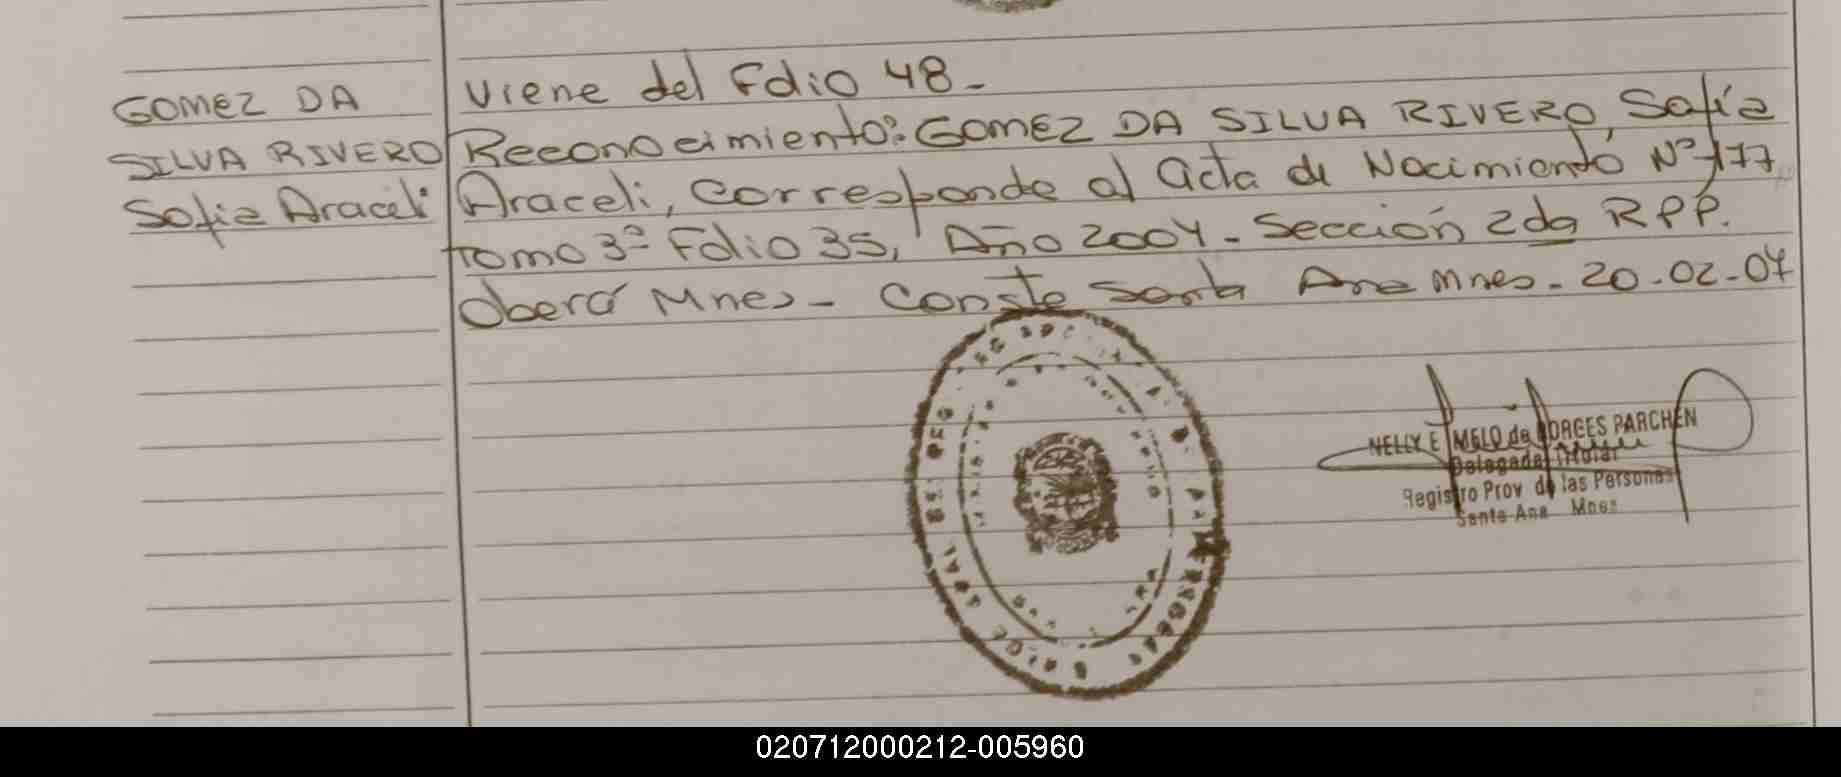 GOMEZ DA
SILVA RIVERO
Sofia Araceli
Viene del Folio 48-
Reconocimiento: GOMEZ DA SILVA RIVERO, Sofía
Araceli, corresponde al acta de Nacimiento Nº 177
tomo 3º Folio 35, Año 2004- Sección 2da RPP.
Oberá Mnes- Conste Santa Ana Mnes- 20-02-07
NELLY E MELO de BORGES PARCHEN
Delegada Titular
Registro Prov de las Personas
Santa Ana Mnes
020712000212-005960